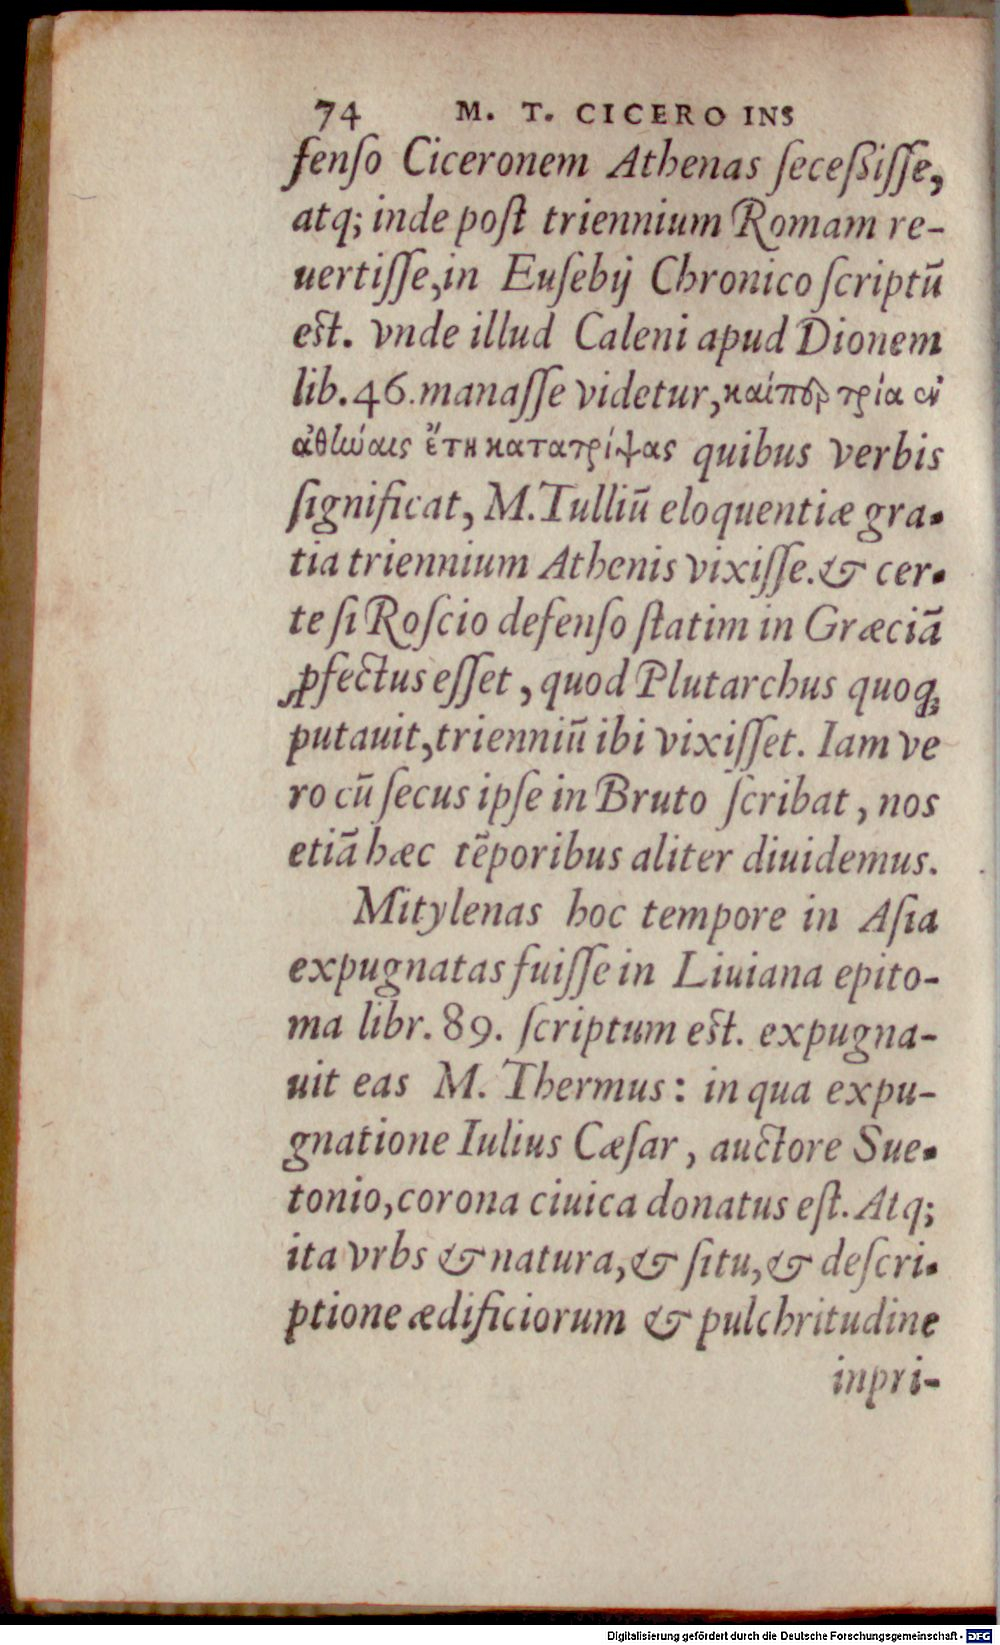 74 M. T. CICERO INS
fenſo Ciceronem Athenas ſeceßiſſe,
atq; inde poſt triennium Romam re-
uertiſſe, in Euſebij Chronico ſcriptū
est. vnde illud Caleni apud Dionem
lib. 46. manaſſe videtur, καίπερ τρία ἐν
ἀθήναις ἔτη κατατρίψας quibus verbis
ſignificat, M. Tulliū eloquentiæ gra-
tia triennium Athenis vixiſſe. & cer-
te ſi Roſcio defenſo ſtatim in Græciā
ꝓfectus eſſet, quod Plutarchus quoq;
putauit, trienniū ibi vixiſſet. Iam ve
ro cū ſecus ipſe in Bruto ſcribat, nos
etiā hæc tēporibus aliter diuidemus.
Mitylenas hoc tempore in Aſia
expugnatas fuiſſe in Liuiana epito-
ma libr. 89. ſcriptum est. expugna-
uit eas M. Thermus: in qua expu-
gnatione Iulius Cæſar, auctore Sue-
tonio, corona ciuica donatus eſt. Atq;
ita vrbs & natura, & ſitu, & deſcri-
ptione ædificiorum & pulchritudine
inpri-
Digitalisierung gefördert durch die Deutsche Forschungsgemeinschaft - DFG